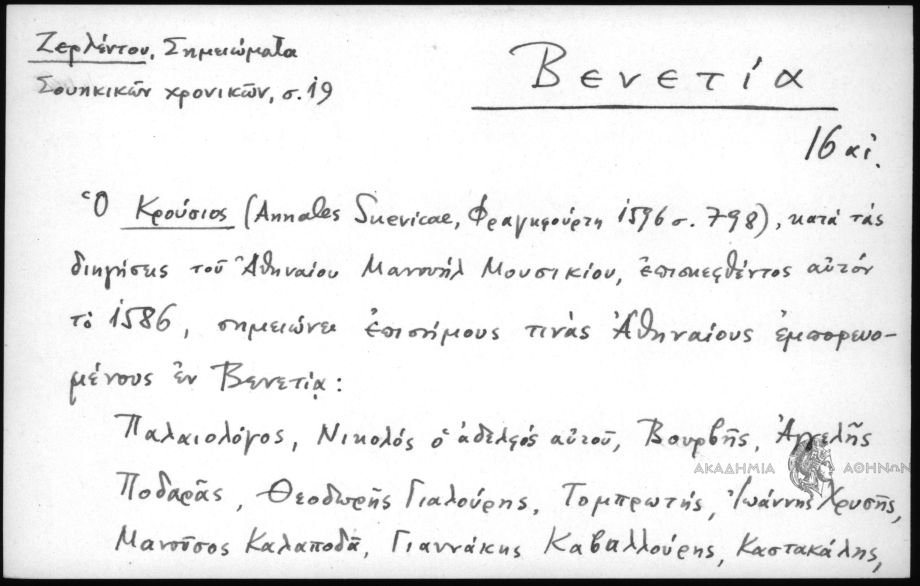 Ζερλέντου, Σημειώματα
Σουηκικῶν χρονικῶν, σ. 19
Βενετία
16 αἰ.
Ὁ Κρούσιος (Annales Suevicae, Φραγκφούρτη 1596 σ. 798), κατὰ τὰς
διηγήσεις τοῦ Ἀθηναίου Μανουὴλ Μουσικίου, ἐπισκεφθέντος αὐτὸν
τὸ 1586, σημειώνει ἐπισήμους τινὰς Ἀθηναίους ἐμπορευο-
μένους ἐν Βενετίᾳ:
Παλαιολόγος, Νικολός ὁ ἀδελφός αὐτοῦ, Βουρβῆς, Ἀγγελῆς
ΑΚΑΔΗΜΙΑ ΑΘΗΝΩΝ
Ποδαρᾶς, Θεοδωρῆς Γιαλούρης, Τομπρωτής, Ἰωάννης Χρυσῆς,
Μανοῦσος Καλαποδᾶ, Γιαννάκης Καβαλλούρης, Καστακάλης,